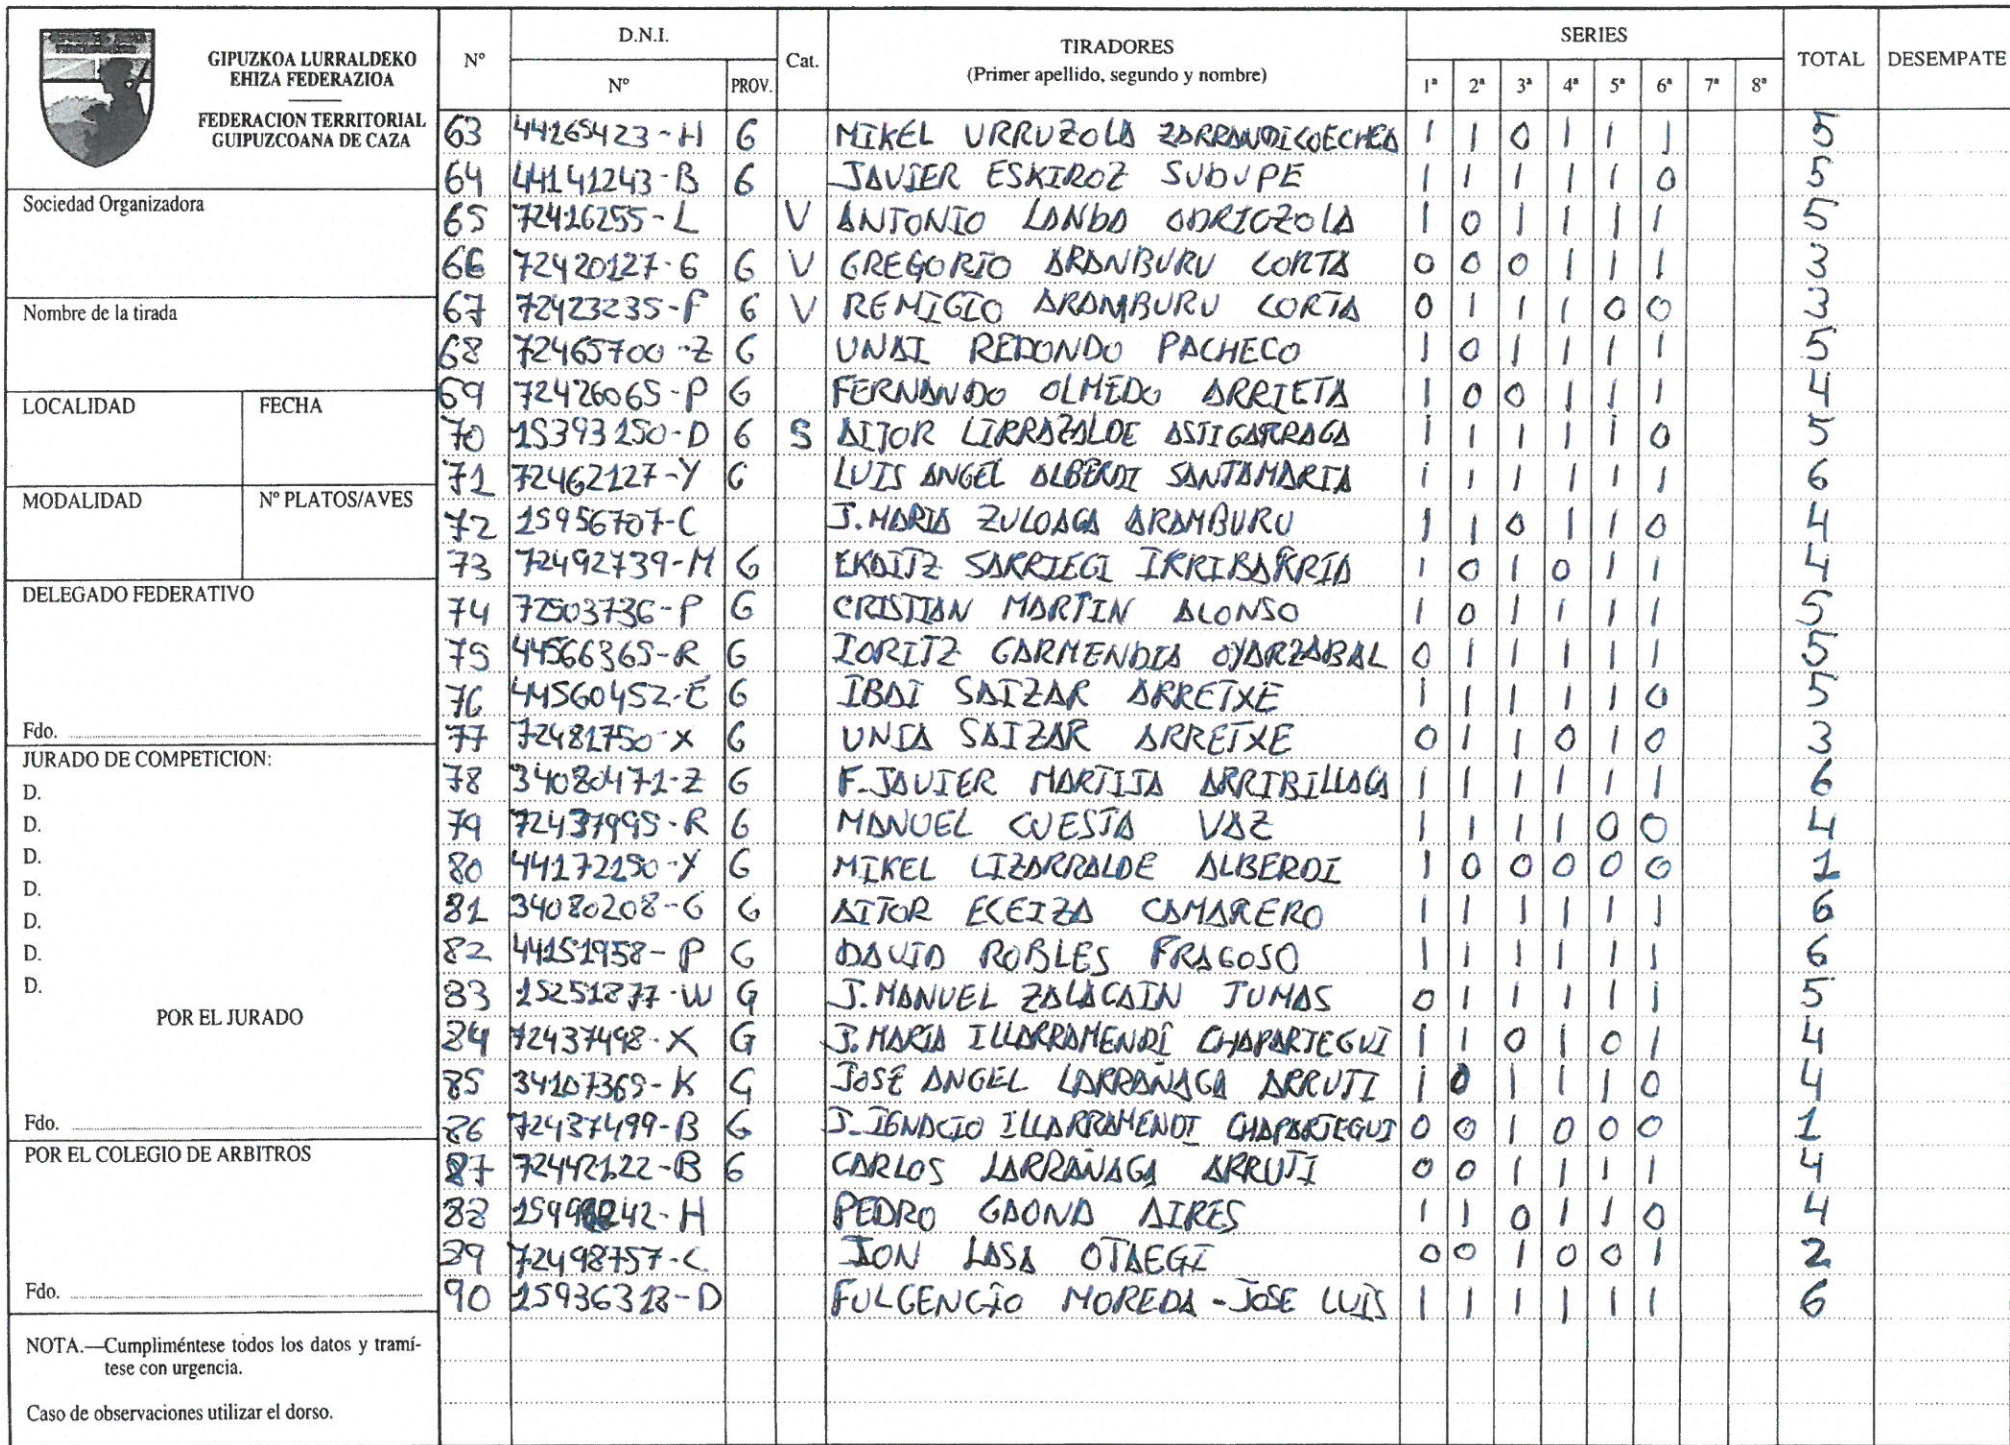 GIPUZKOA LURRALDEKO
EHIZA FEDERAZIOA
FEDERACION TERRITORIAL
GUIPUZCOANA DE CAZA
Sociedad Organizadora
Nombre de la tirada
LOCALIDAD FECHA
MODALIDAD Nº PLATOS/AVES
DELEGADO FEDERATIVO
Fdo.
JURADO DE COMPETICION:
D.
D.
D.
D.
D.
D.
D.
POR EL JURADO
Fdo.
POR EL COLEGIO DE ARBITROS
Fdo.
NOTA.—Cumpliméntese todos los datos y tramí-
tese con urgencia.
Caso de observaciones utilizar el dorso.
Nº D.N.I. Cat. TIRADORES SERIES TOTAL DESEMPATE
Nº PROV. (Primer apellido, segundo y nombre) 1ª 2ª 3ª 4ª 5ª 6ª 7ª 8ª
63 44165423-H G MIKEL URRUZOLA ZARRANDICOECHEA 1 1 0 1 1 1 5
64 44141243-B G JAVIER ESKIROZ SUDUPE 1 1 1 1 1 0 5
65 72416255-L V ANTONIO LANDA ODRIOZOLA 1 0 1 1 1 1 5
66 72420127-G G V GREGORIO ARANBURU CORTA 0 0 0 1 1 1 3
67 72423235-F G V REMIGIO ARAMBURU CORTA 0 1 1 1 0 0 3
68 72465700-Z G UNAI REDONDO PACHECO 1 0 1 1 1 1 5
69 72426065-P G FERNANDO OLMEDO ARRIETA 1 0 0 1 1 1 4
70 15393150-D G S AITOR LIRRAZALDE ASTIGARRAGA 1 1 1 1 1 0 5
71 72462127-Y G LUIS ANGEL ALBERDI SANTAMARIA 1 1 1 1 1 1 6
72 15956707-C J.MARIA ZULOAGA ARAMBURU 1 1 0 1 1 0 4
73 72492739-M G EKAITZ SARRIEGI IRRIBARRIA 1 0 1 0 1 1 4
74 72503736-P G CRISTIAN MARTIN ALONSO 1 0 1 1 1 1 5
75 44566365-R G IORITZ GARMENDIA OYARZABAL 0 1 1 1 1 1 5
76 44560452-E G IBAI SAIZAR ARRETXE 1 1 1 1 1 0 5
77 72481750-X G UNIA SAIZAR ARRETXE 0 1 1 0 1 0 3
78 34080471-Z G F.JAVIER MARTIJA ARRIBILLAGA 1 1 1 1 1 1 6
79 72437995-R G MANUEL CUESTA VAZ 1 1 1 1 0 0 4
80 44172150-Y G MIKEL LIZARRALDE ALBERDI 1 0 0 0 0 0 1
81 34080208-G G AITOR ECEIZA CAMARERO 1 1 1 1 1 1 6
82 44151958-P G DAVID ROBLES FRAGOSO 1 1 1 1 1 1 6
83 15251877-W G J.MANUEL ZALACAIN JUMAS 0 1 1 1 1 1 5
84 72437498-X G J.MARIA ILLARRAMENDI CHAPARTEGUI 1 1 0 1 0 1 4
85 34107369-K G JOSE ANGEL LARRAÑAGA ARRUTI 1 0 1 1 1 0 4
86 72437499-B G J.IGNACIO ILLARRAMENDI CHAPARTEGUI 0 0 1 0 0 0 1
87 72442122-B G CARLOS LARRAÑAGA ARRUTI 0 0 1 1 1 1 4
88 PEDRO GAONA AIRES 1 1 0 1 1 0 4
89 72498757-C JON LASA OTAEGI 0 0 1 0 0 1 2
90 15936318-D FULGENCIO MOREDA-JOSE LUIS 1 1 1 1 1 1 6